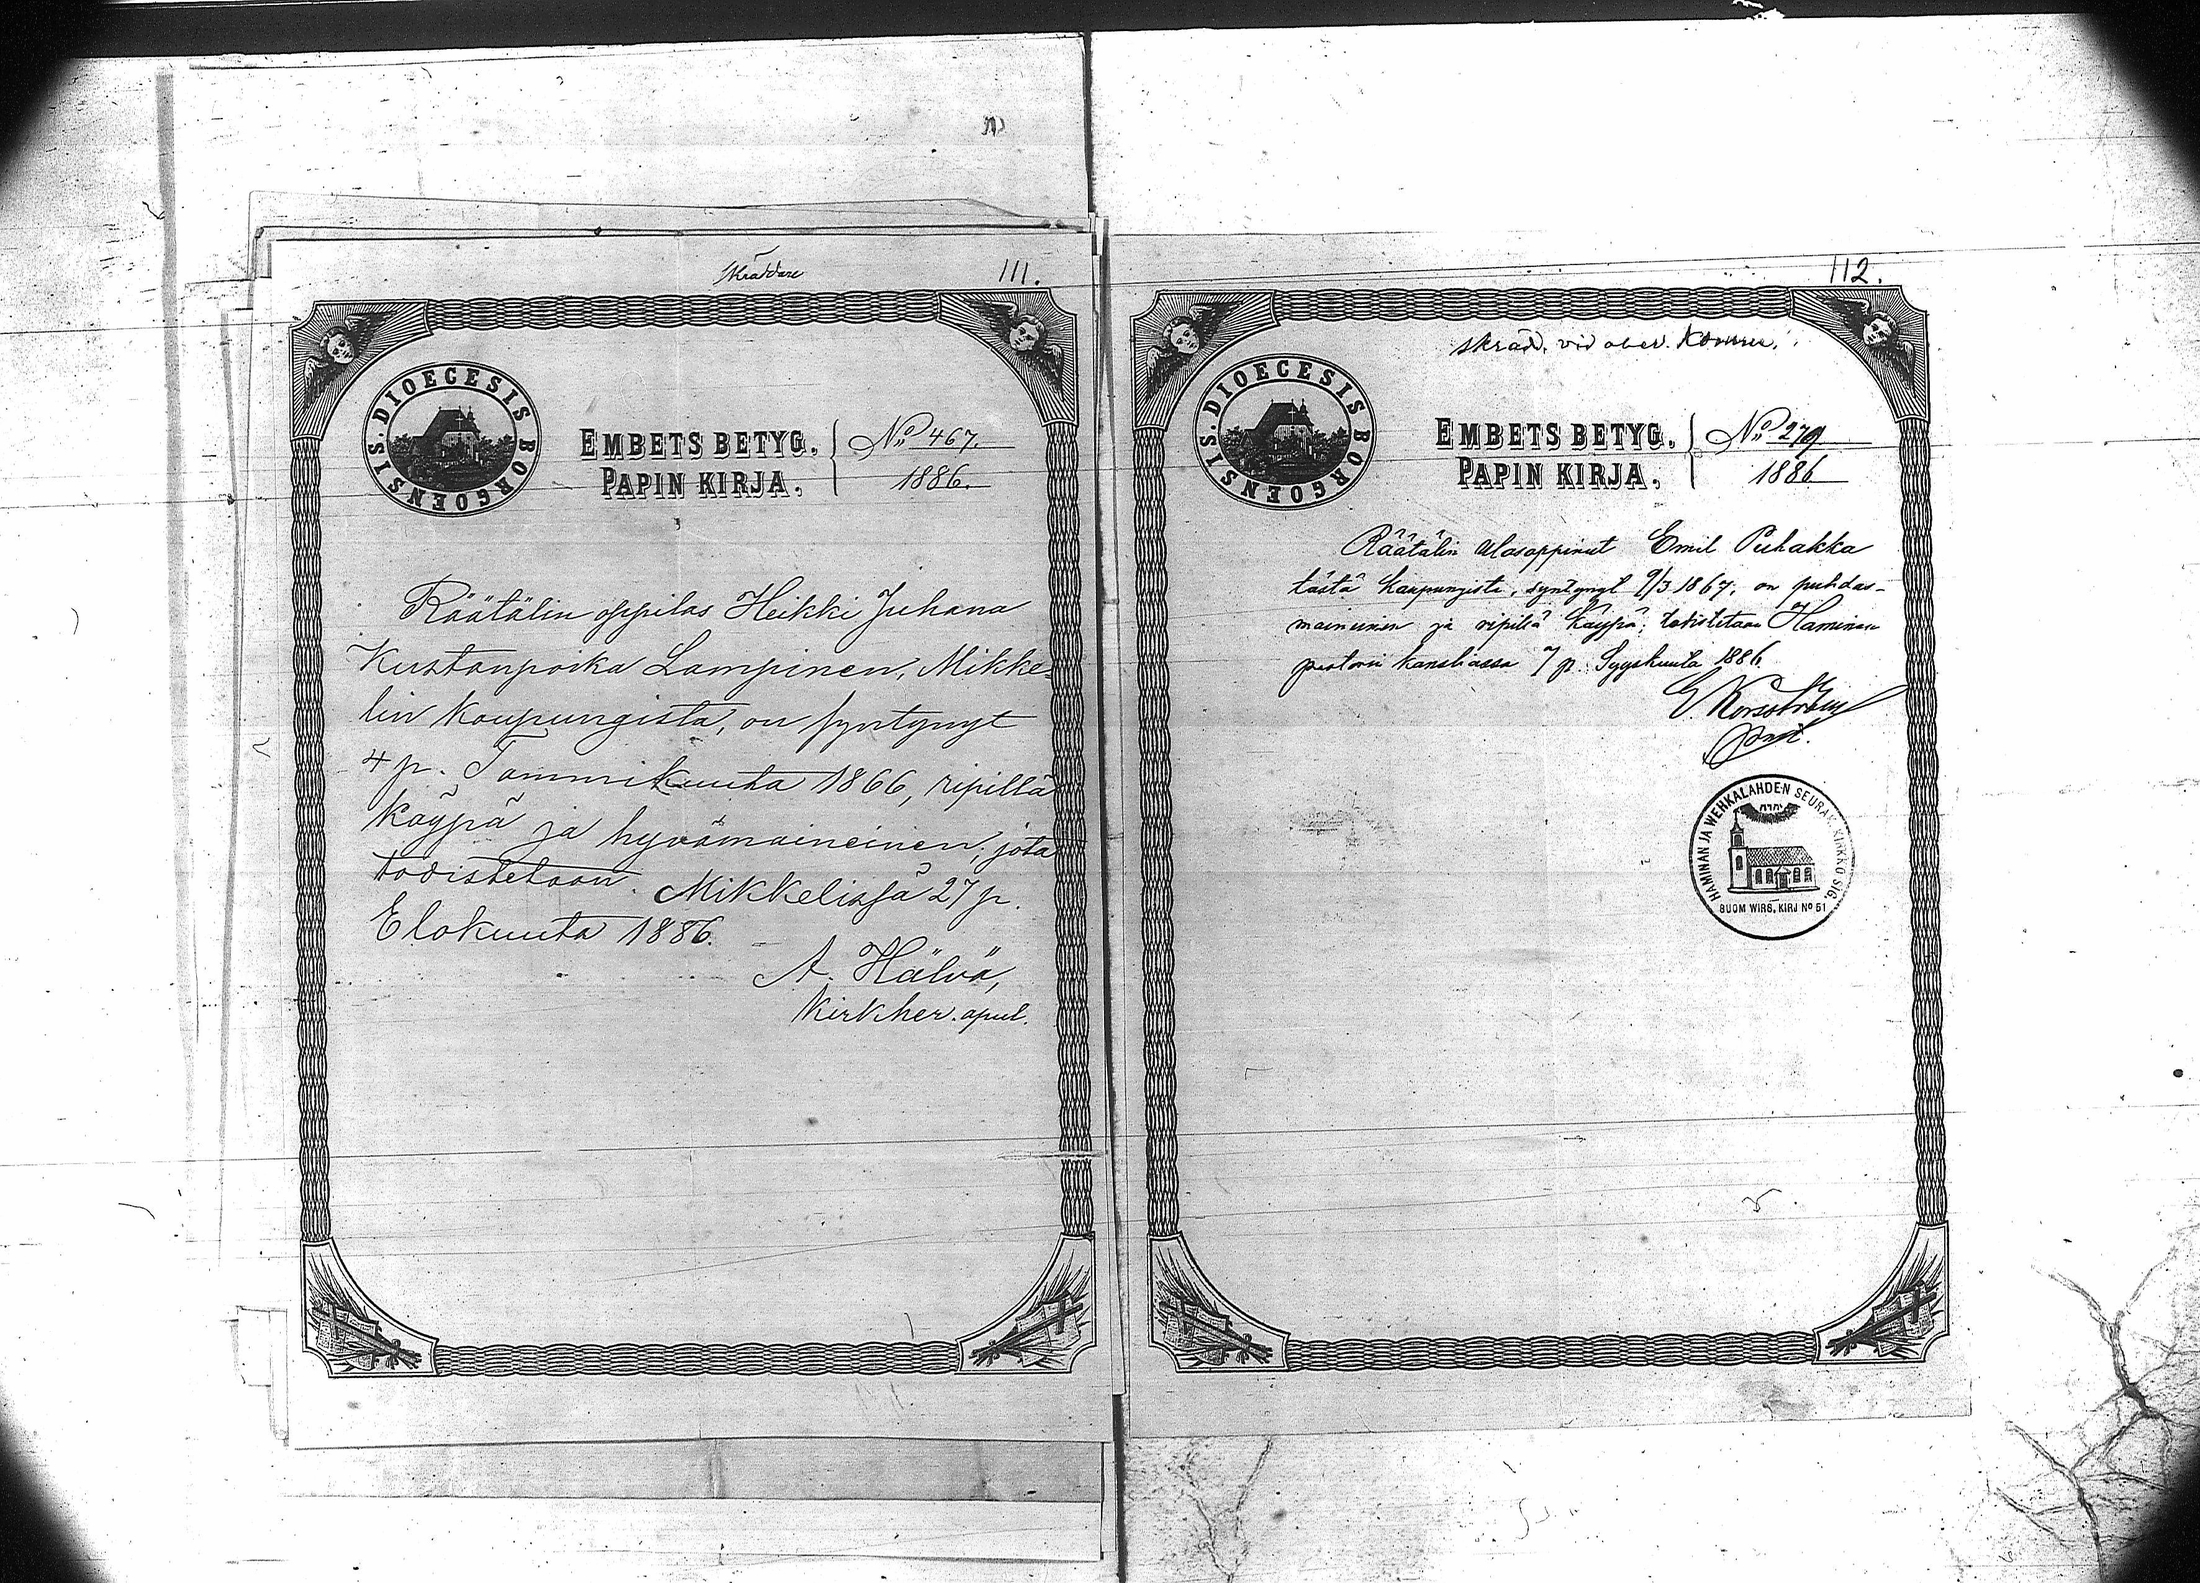 Skräddare
111.
DIOECESIS BORGOENSIS.
EMBETS BETYG.
PAPIN KIRJA.
No 467.
1886.
Räätälin oppilas Heikki Juhana
Kustaanpoika Lampinen, Mikke-
lin kaupungista, on syntynyt
4 p. Tammikuuta 1866, ripillä
käypä ja hyvämaineinen; jota
todistetaan. Mikkelissä 27 p.
Elokuuta 1886.
A. Hälvä,
Kirkher. apul.
112.
skräd. vid
DIOECESIS BORGOENSIS.
EMBETS BETYG.
PAPIN KIRJA.
No 279
1886
Räätälin ulosoppinut Emil Puhakka
tästä kaupungista, syntynyt 9/3 1867, on puhdas-
maineinen ja ripillä käypä; todistetaan Haminan
pastorin kansliassa 7 p. Syyskuuta 1886.
HAMINAN JA WEHKALAHDEN SEURAK. KIRKKO SIG.
SUOM WIRS. KIRJ No 51